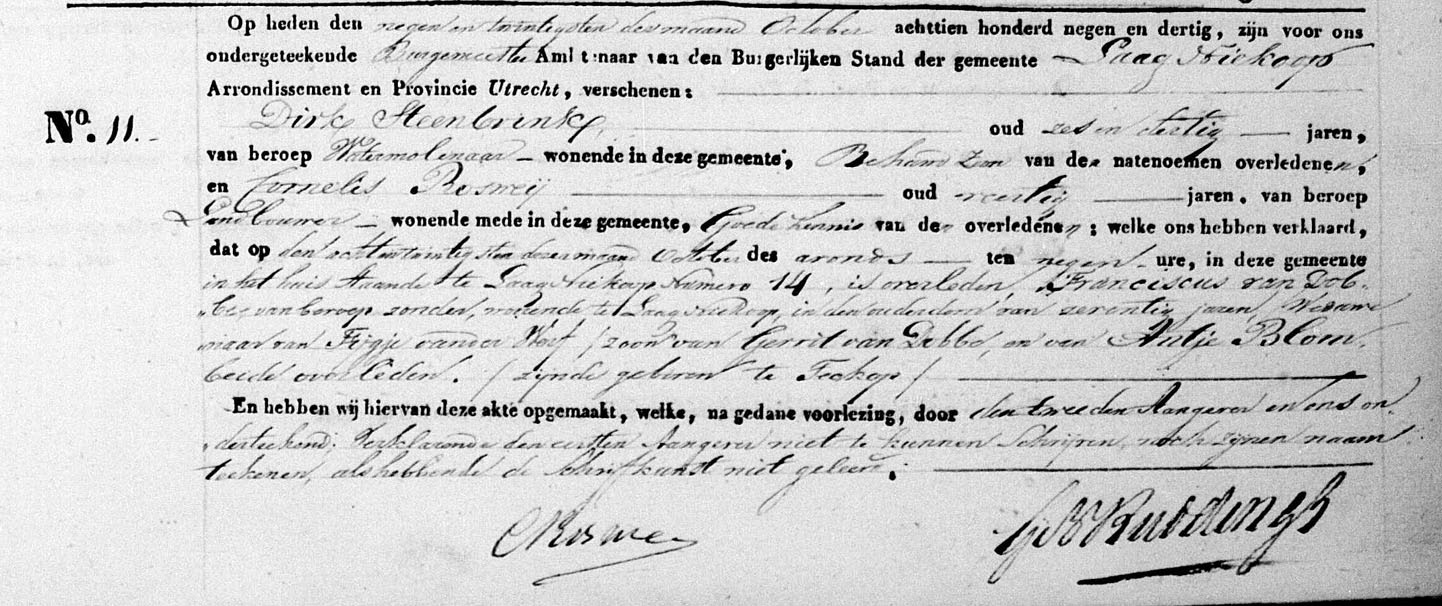 Op heden den negen en twintigsten des maand October achttien honderd negen en dertig, zijn voor ons
ondergeteekende Burgemeester Ambtenaar van den Burgerlijken Stand der gemeente Laag Niekoop
Arrondissement en Provincie Utrecht, verschenen:
No. 11. Dirk Steenbrink, oud zes en dertig jaren,
van beroep Watermolenaar wonende in deze gemeente, Behuwd Zoon van den natenoemen overledenen,
en Cornelis Rosweij oud veertig jaren, van beroep
Landbouwer wonende mede in deze gemeente, Goede kennis van den overledenen; welke ons hebben verklaard,
dat op den achtentwintigsten dezer maand October des avonds ten negen ure, in deze gemeente
in het huis staande te Laag Niekoop Numero 14, is overleden, Franciscus van Dob-
„be, van beroep zonder, wonende te Laag Niekoop, in den ouderdom van zeventig jaren, Weduwe
naar van Fijgje van der Werf / zoon van Gerrit van Dobbe, en van Antje Blom,
beide overleden. / zijnde geboren te Teckop /
En hebben wij hiervan deze akte opgemaakt, welke, na gedane voorlezing, door den tweeden Aangever en ons on-
„derteekend; Verklarende den eersten Aangever niet te kunnen Schrijven, noch zijnen naam
teekenen, als hebbende de Schrijfkunst niet geleerd.
CRoswey
Ruddingh